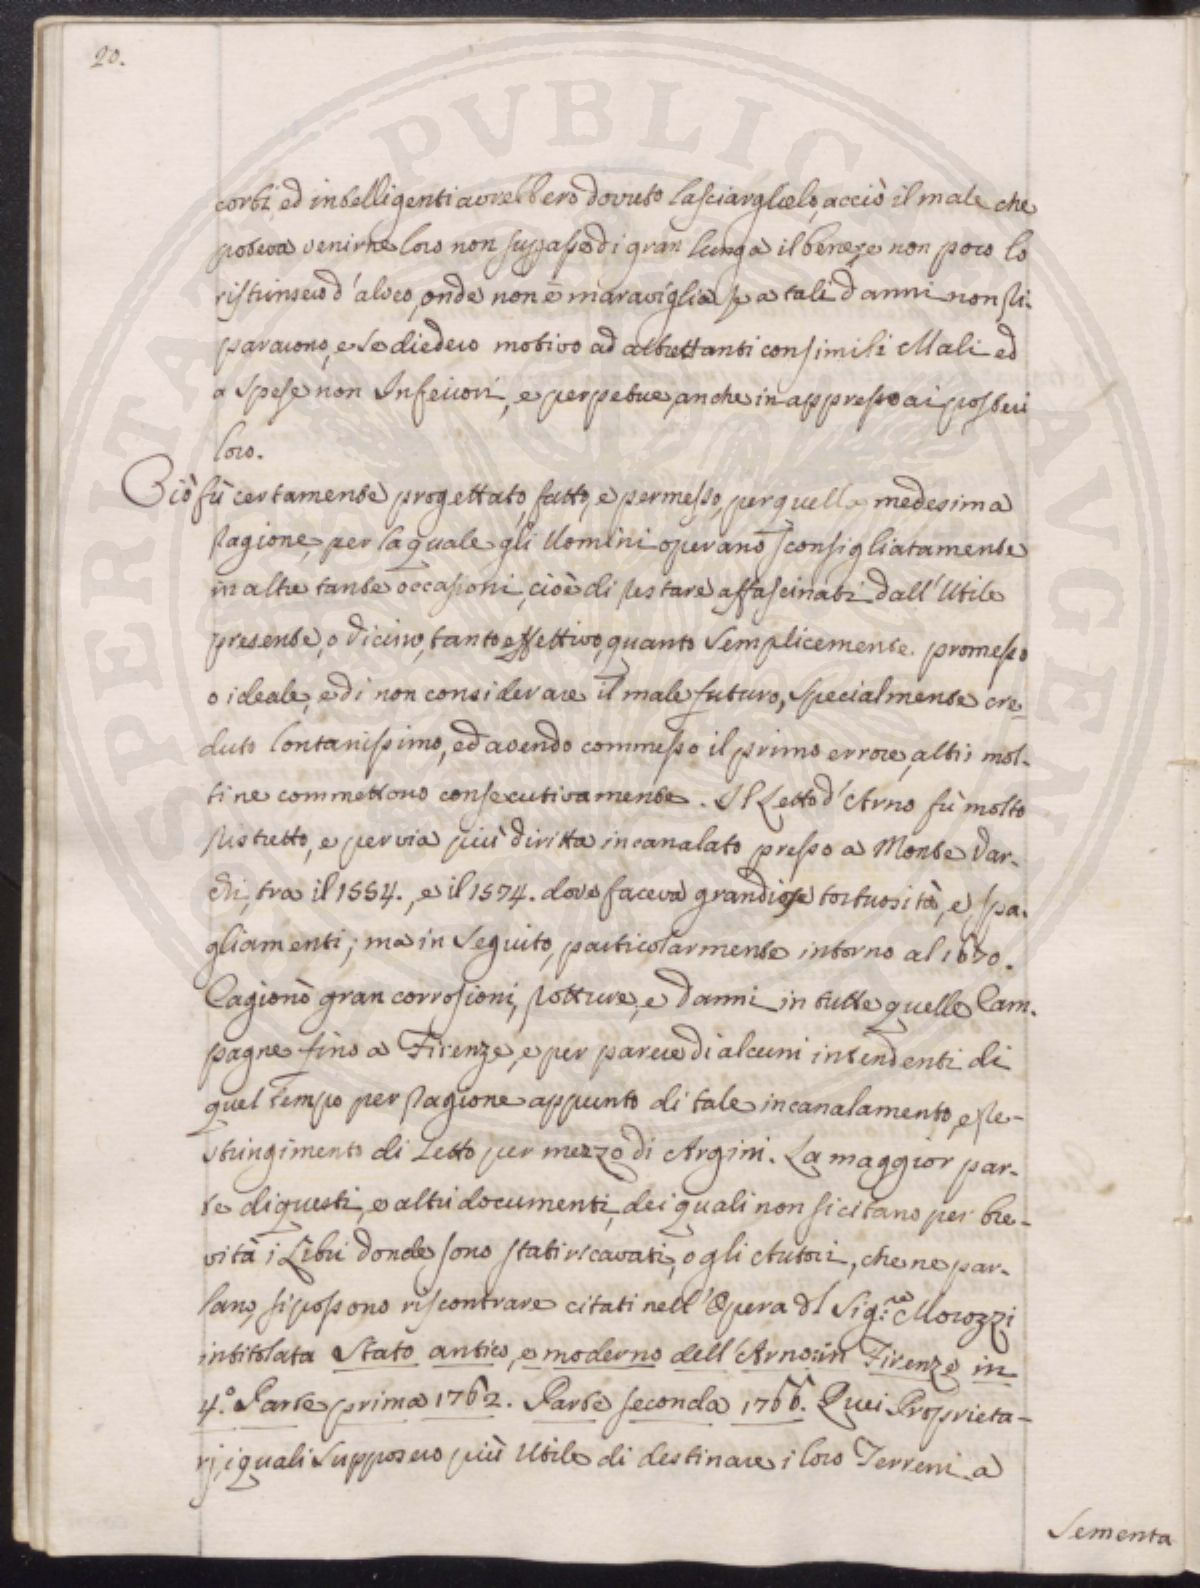 20.
PERITAT PVBLICAE AVGENDAE
corti, ed intelligenti avrebbero dovuto lasciarglielo, acciò il male che
poteva venirne loro non superasse di gran lunga il bene, e non poco lo
ristrinsero d'alveo, onde non è maraviglia se a tali danni non ri-
pararono, e se diedero motivo ad altrettanti consimili Mali ed
a Spese non Inferiori, e perpetue, anche in appresso ai posteri
loro.
Ciò fù certamente progettato, fatto, e permesso, per quella medesima
ragione, per la quale gli Uomini operano sconsigliatamente
in altre tante occasioni, cioè di restare affascinati dall'Utile
presente, o vicino, tanto effettivo, quanto Semplicemente promesso
o ideale, e di non considerare il male futuro, Specialmente cre-
duto lontanissimo, ed avendo commesso il primo errore, altri mol-
ti ne commettono consecutivamente. Il Letto d'Arno fù molto
ristretto, e per via più diritta incanalato presso a Monte Var-
chi, tra il 1554., e il 1574. dove faceva grandiose tortuosità, e spa-
gliamenti; ma in Seguito, particolarmente intorno al 1670.
Cagionò gran corrosioni, rotture, e danni in tutte quelle Cam-
pagne fino a Firenze, e per parere di alcuni intendenti di
quel Tempo per ragione appunto di tale incanalamento, e re-
stringimento di Letto per mezzo di Argini. La maggior par-
te di questi, e altri documenti, dei quali non si citano per bre-
vità i Libri donde sono stati ricavati, o gli Autori, che ne par-
lano, si possono riscontrare citati nell'Opera dl Sig:re Morozzi
intitolata Stato antico, e moderno dell'Arno: in Firenze in
4.° Parte prima 1762. Parte seconda 1766. Quei Proprieta-
rj, i quali Supposero più Utile di destinare i loro Terreni a
Sementa